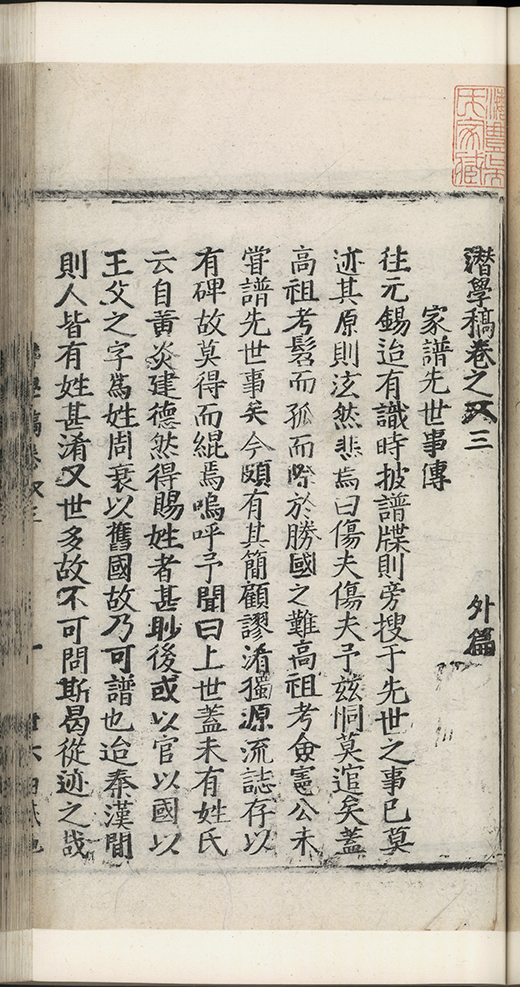 潛學稿卷之又三
外篇
家譜先世事傳
往元錫迨有識時披譜牒則旁搜于先世之事已莫
迹其原則泫然悲焉曰傷夫傷夫予兹恫莫逭矣蓋
高祖考髫而孤而際於勝國之難高祖考僉憲公未
嘗譜先世事矣今頗有其簡顧謬淆獨源流誌存以
有碑故莫得而緄焉嗚呼予聞曰上世蓋未有姓氏
云自黃炎建德然得賜姓者甚尠後或以官以國以
王父之字爲姓周衰以舊國故乃可譜也迨秦漢間
則人皆有姓甚淆又世多故不可問斯曷從迹之哉
學稿卷又三
一